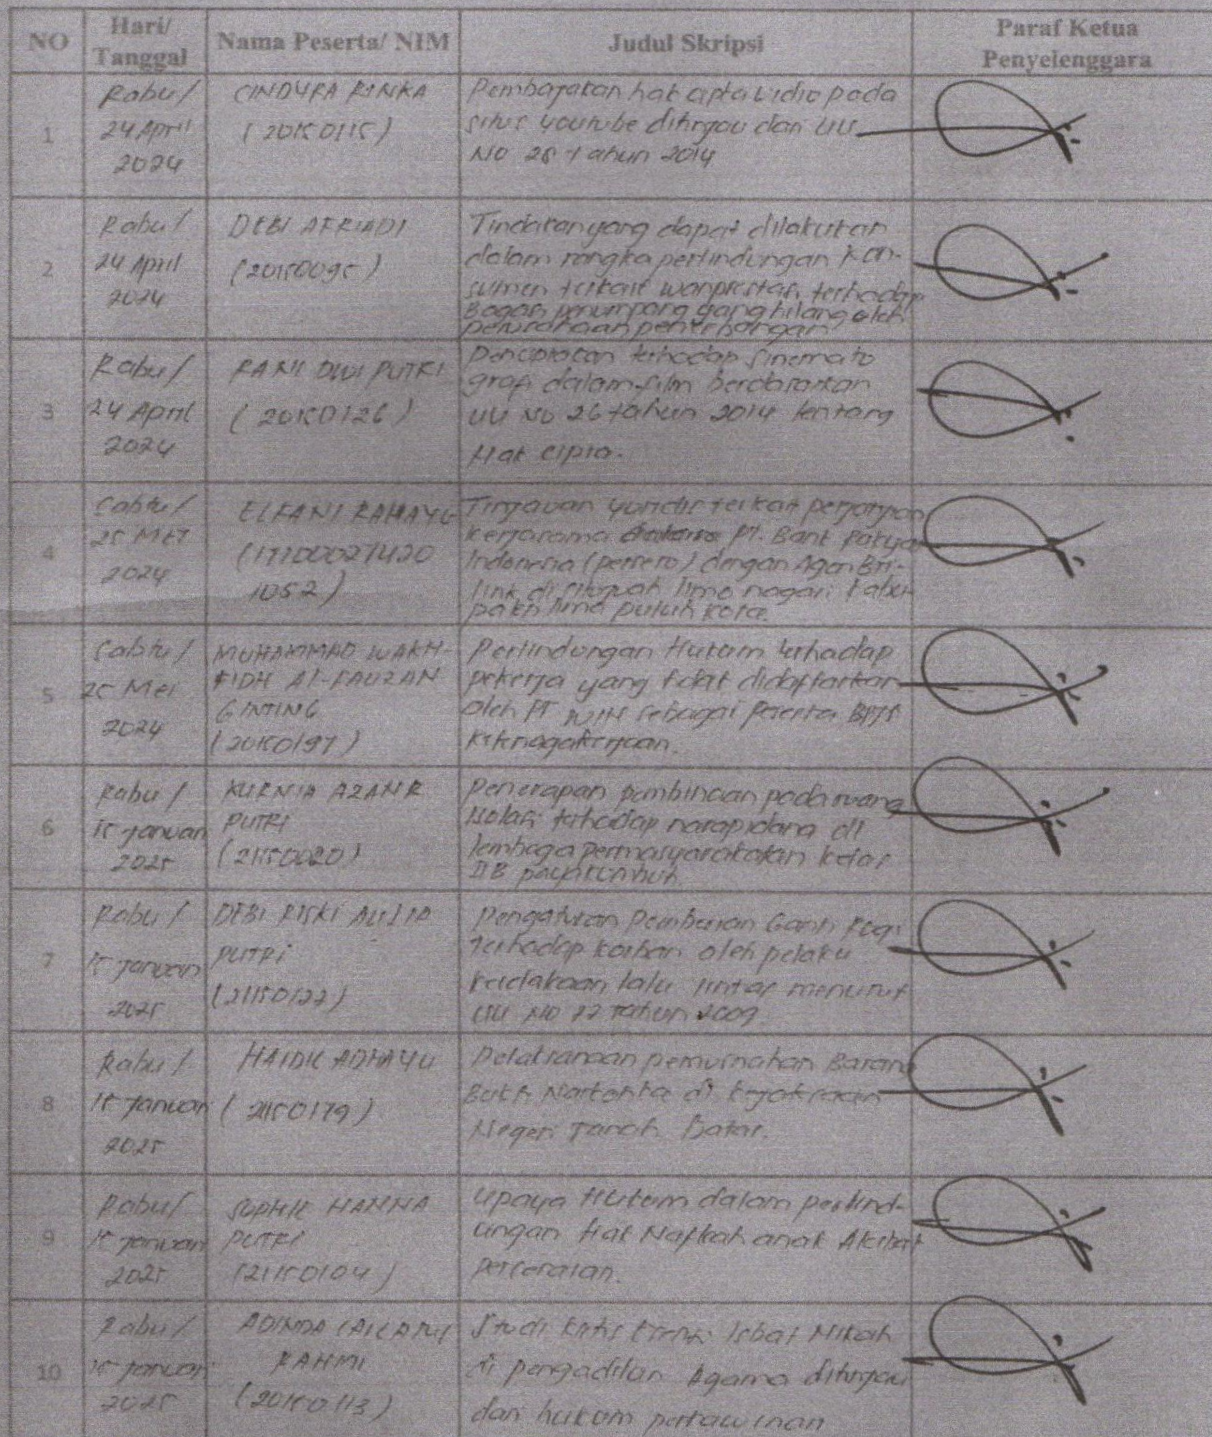 NO
Hari/
Tanggal
Nama Peserta/ NIM
Judul Skripsi
Paraf Ketua
Penyelenggara
1
Rabu/
24 April
2024
CINDYRA RINKA
(20150115)
Pembajakan hak cipta vidio pada
situs youtube ditinjau dari UU
No 28 tahun 2014
2
Rabu/
24 April
2024
DEBI AFRIADI
(20150095)
Tindakan yang dapat dilakukan
dalam rangka perlindungan kon-
sumen terkait wanprestasi terhadap
Bagasi penumpang yang hilang oleh
perusahaan penerbangan
3
Rabu/
24 April
2024
RANI DWI PUTRI
(20150126)
terhadap sinemato
grafi dalam film berdasarkan
UU No 26 tahun 2014 tentang
Hak cipta.
4
Sabtu/
25 Mei
2024
ELFANI RAHAYU
(17100027420
1052)
Tinjauan yuridis terkait perjanjian
kerjasama PT. Bank Rakyat
Indonesia (persero) dengan Agen Bri-
link di limo nagari kabu-
paten lima puluh kota.
5
Sabtu/
25 Mei
2024
MUHAMMAD WAKH-
FIDH AL-FAUZAN
GINTING
(20150197)
Perlindungan Hukum terhadap
pekerja yang tidak didaftarkan
oleh PT sebagai Peserta BPJS
Ketenagakerjaan.
6
Rabu/
15 Januari
2025
KURNIA AZAHR
PUTRI
(21150020)
Penerapan pembinaan pada ruang
isolasi terhadap narapidana di
lembaga permasyarakatan kelas
II B payakumbuh.
7
Rabu/
15 Januari
2025
DEBI RISKI AULIA
PUTRI
(21150122)
Pengaturan Pemberian Ganti Rugi
Terhadap korban oleh pelaku
kecelakaan lalu lintas menurut
UU No 22 Tahun 2009.
8
Rabu/
15 Januari
2025
HAIDIL ADHAYU
(21150179)
Pelaksanaan pemusnahan Barang
Bukti Narkotika di kejaksaan
Negeri Tanah Datar.
9
Rabu/
15 Januari
2025
SOPHIE HANNA
PUTRI
(21150104)
Upaya Hukum dalam perlind-
ungan Hak Nafkah anak Akibat
perceraian.
10
Rabu/
15 Januari
2025
ADINDA
RAHMI
(20150113)
Studi Isbat Nikah
di pengadilan Agama ditinjau
dari hukum perkawinan